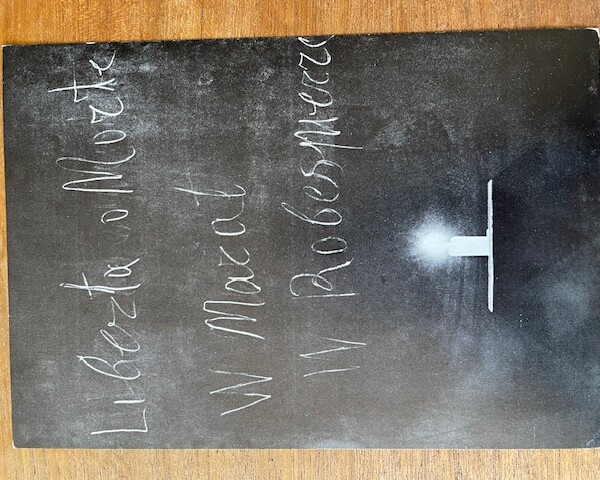 Libertà o Morte
W Marat
W Robespierre